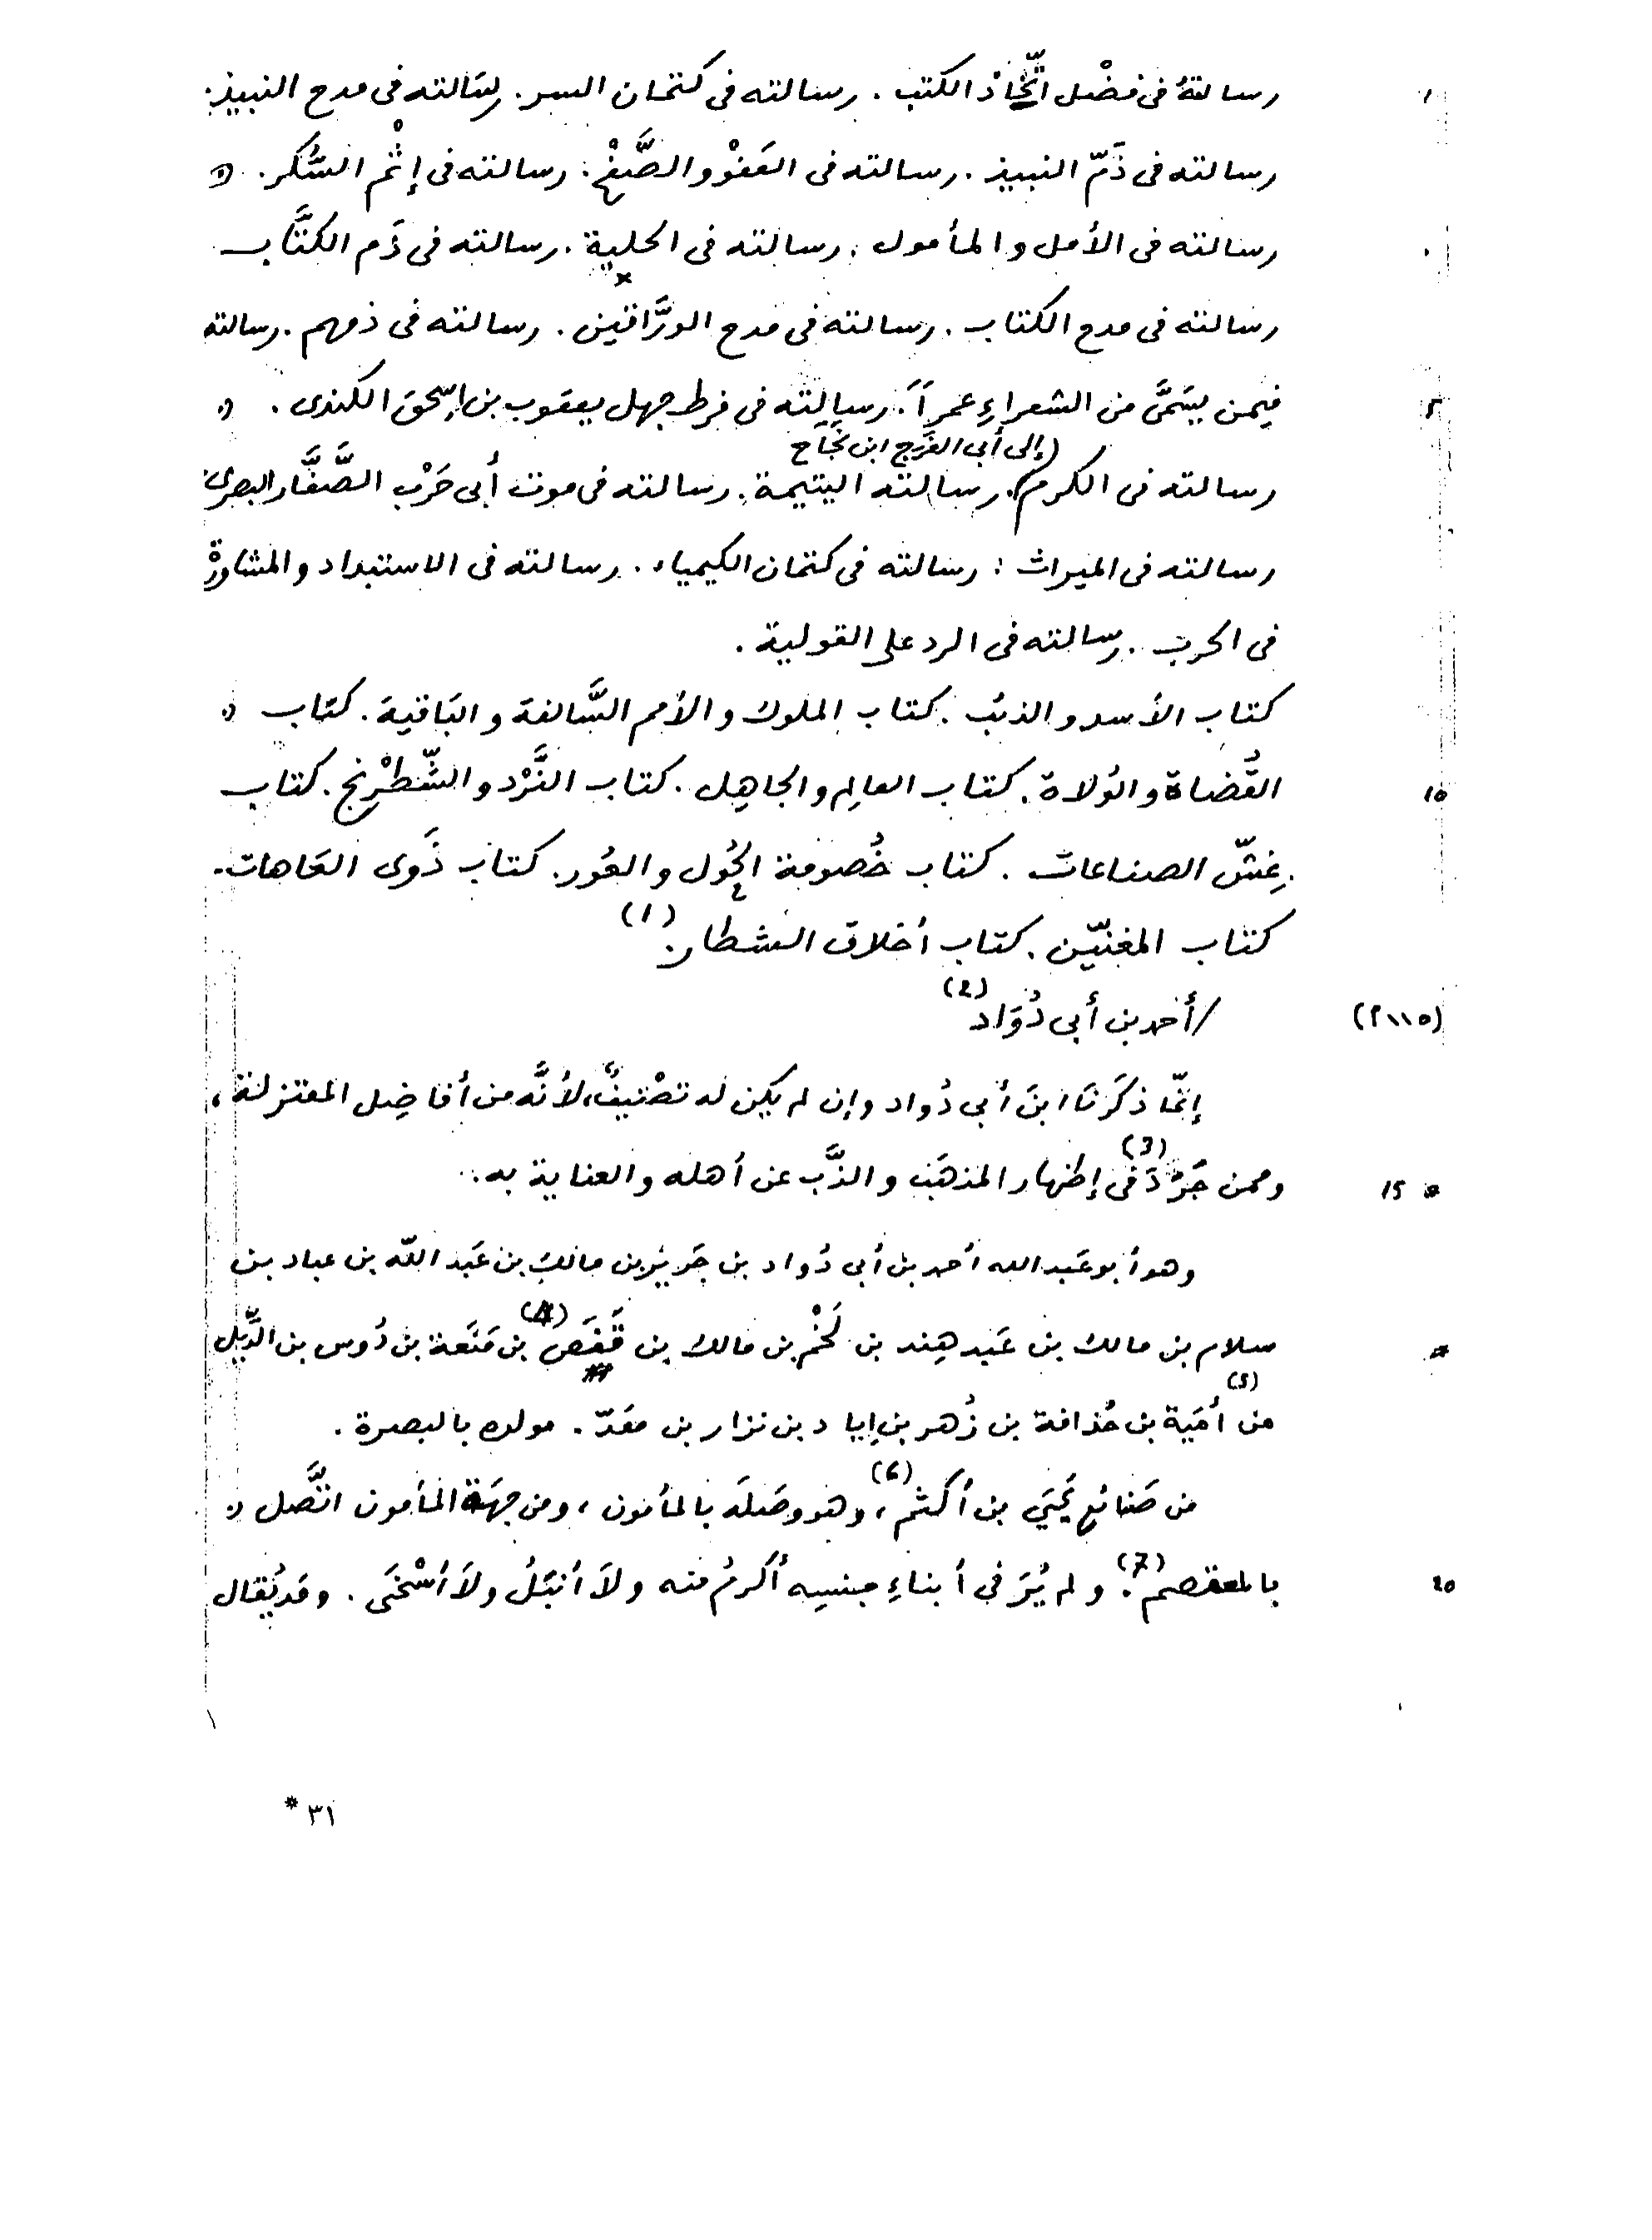 رسالتهُ فى فضْل اتّخاذ الكتب . رسالته فى كتمان السر . رسَالته فى مدح النبيذ .
رسالته فى ذَمّ النبيذ . رسالته فى العَفْو والصَّفْح . رسالته فى إثْم السُّكر .
رسالته فى الأمل والمأمول . رسالته فى الحلية . رسالته فى ذَم الكتَّاب
رسالته فى مدح الكتاب . رسالته فى مدح الورَّاقين . رسالته فى ذمهم . رسالته
فيمن يسَمَّى من الشعراءِ عمرًا . رسالته فى فرط جهل يعقوب بن إسحق الكندى .
(إلى أبى الفَرَج ابن نجَاح
رسالته فى الكرم . رسالته اليتيمة . رسالته فى موت أبى حَرْب الصَّفَّار البصرى
رسالته فى الميراث . رسالته فى كتمان الكيمياء . رسالته فى الاستبداد والمشاورة
فى الحرب . رسالته فى الرد على القولية .
كتاب الأسد والذئب . كتاب الملوك والأمم السَّالفة والبَاقية . كتاب
القُضاة والوُلاة . كتاب العالِم والجاهِل . كتاب النَّرْد والشِّطرْنج . كتاب 10
غِشّ الصناعات . كتاب خُصومة الحُول والعُور . كتاب ذَوى العَاهات .
كتاب المغنيّين . كتاب أخلاق الشطار . (1)
/ أحمد بن أبى دُوَاد (2) (٢١١٥)
إنمّا ذكَرنَا ابنَ أبى دُواد وإن لم يكن له تصْنيفٌ، لأنَّه من أفاضِل المعتزلة،
وممن جَرَّدَ (3) فى إظهار المذهَب والذَّب عن أهله والعناية به . 15
وهو أبو عَبد الله أحمد بن أبى دُواد بن جَرير بن مالك بن عَبد الله بن عباد بن
سلام بن مالك بن عَبد هِند بن لَخْم بن مالك بن قَنَص (4) بن مَنَعة بن دُوس بن الدِّيل
من (5) أُمَية بن حُذافة بن زُهر بن إياد بن نزار بن معَدّ . مولده بالبصرة .
من صَنائع يَحيَى بن أكثم (6)، وهو وصَلَه بالمأمون، ومن جهَة المأمون اتَّصل
بالمعتصم (7) . ولم يُرَ فى أبناءِ جنسِه أكرمُ منه ولاَ أنبَلُ ولاَ أسْخَى . وقد يُقال 20
* ٣١